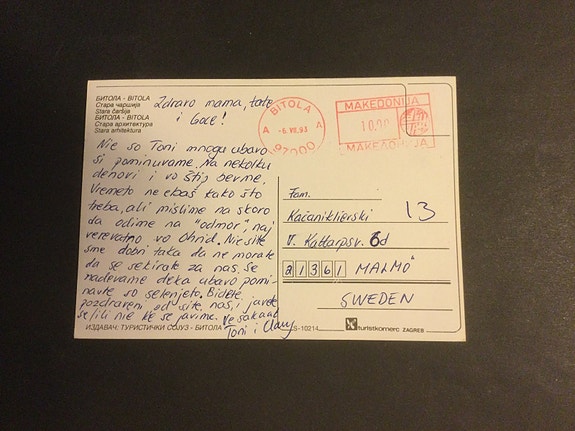 БИТОЛА - BITOLA
Стара чаршија
Stara čaršija
БИТОЛА - BITOLA
Стара архитектура
Stara arhitektura
Zdravo mama, tate
i Goce!
Nie so Toni mnogu ubavo
si pominuvame. Na nekolku
denovi i vo Štip bevme.
Vremeto ne ebaš kako što
treba, ali mislime na skoro
da odime na "odmor", naj
verevatno vo Ohrid. Nie site
sme dobri taka da ne morate
da se sekirate za nas. Se
nadevame deka ubavo pomi-
navte so selenjeto. Bidete
pozdraveni od site nas, i javete
se ili nie ke se javime. Ve sakaat
Toni i
ИЗДАВАЧ: ТУРИСТИЧКИ СОЈУЗ - БИТОЛА
S-10214
BITOLA
A -6.VII.93 A
97000
MAKEDONIJA
10.00
MAKEDONIJA
Fam.
Kačaniklierski 13
V. Kattarpsv. 6d
21361 MALMÖ
SWEDEN
turistkomerc ZAGREB